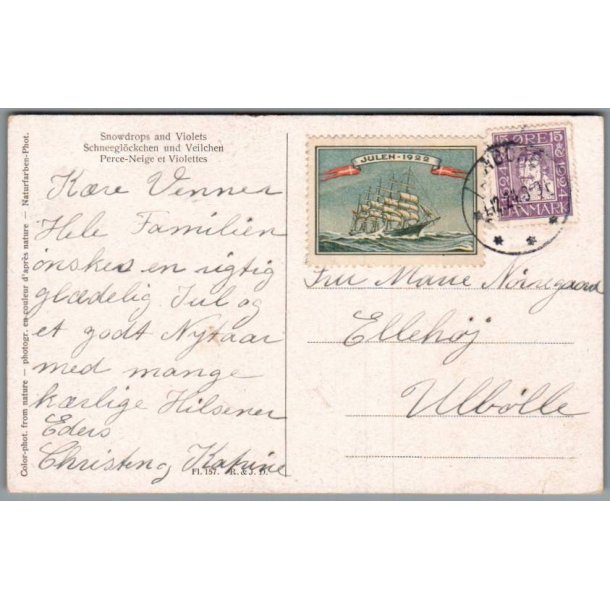 Snowdrops and Violets
Schneeglöckchen und Veilchen
Perce-Neige et Violettes
Kære Venner
Hele Familien
ønskes en rigtig
glædelig Jul og
et godt Nytaar
med mange
kærlige Hilsener
Eders
Christen og Katrine
Color-phot from nature — photogr. en couleur d'après nature — Naturfarben-Phot.
Fl. 157. R. & J. D.
JULEN · 1922
15 ØRE 15
DANMARK
Fru Marie Nørregaard
Ellehøj
Ulbølle